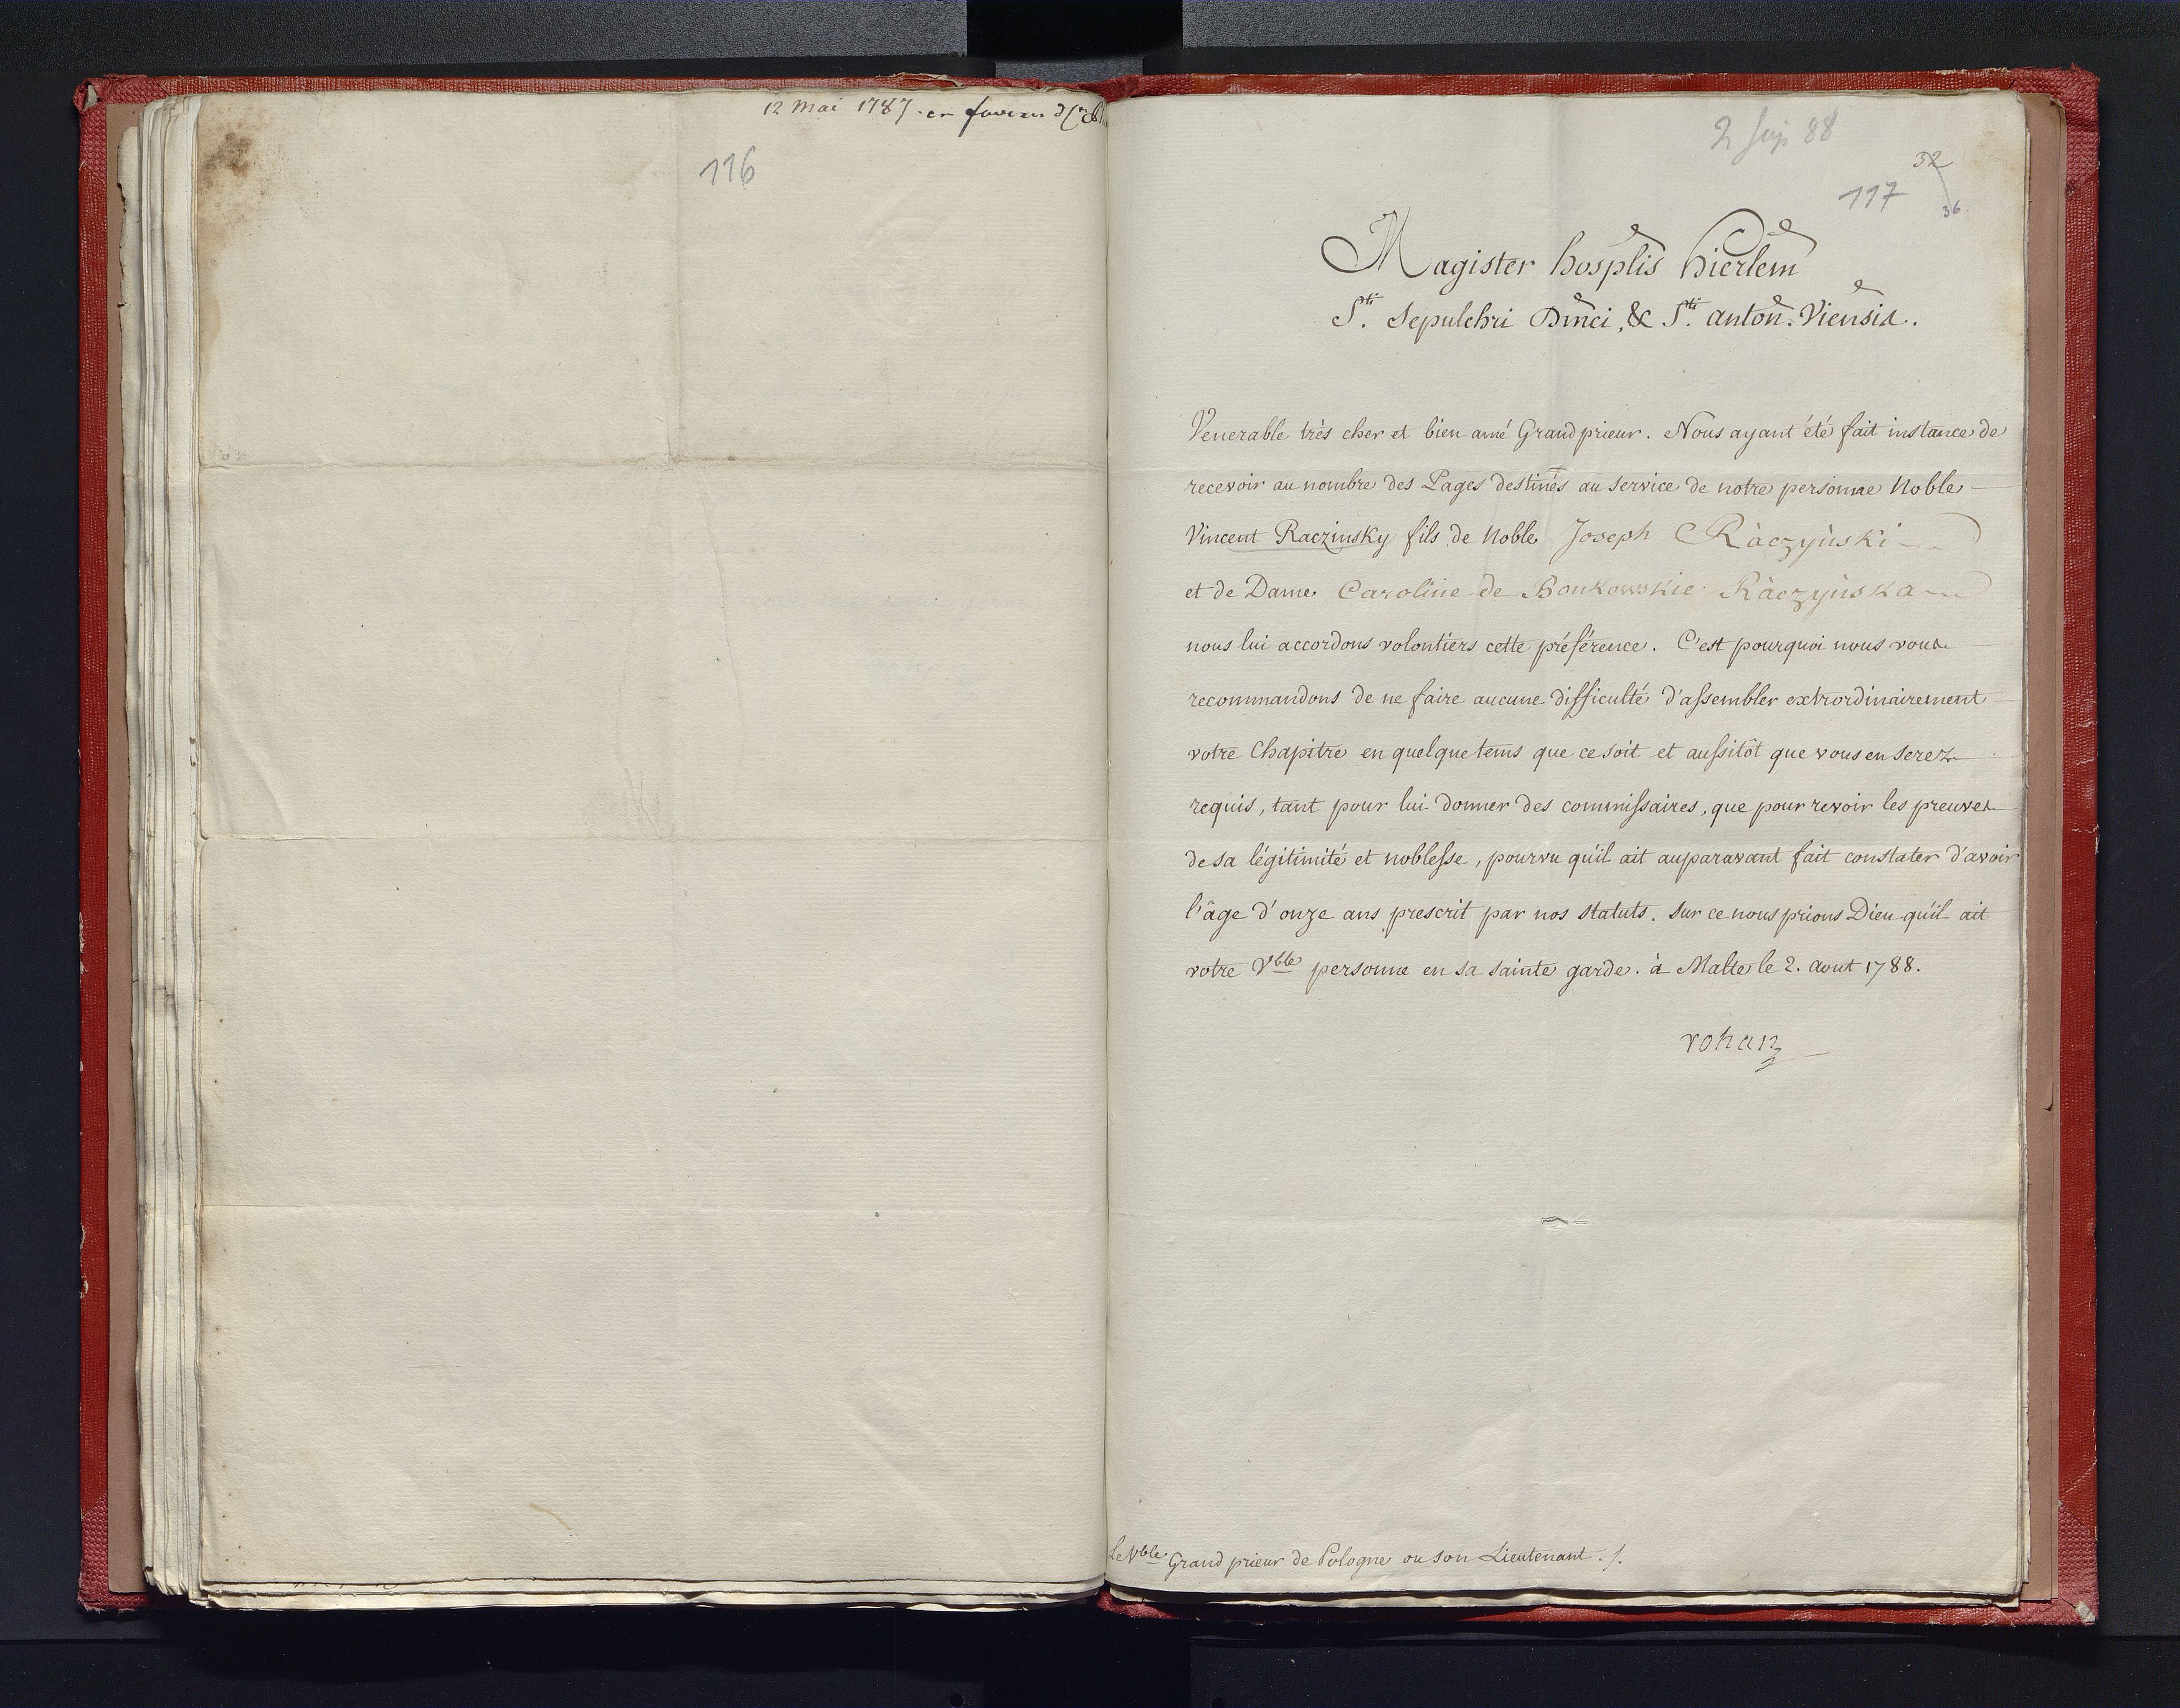 12 Mai 1787. en faveur
116
2 88
32
117
36.
Magister hosplis hierlem
Sti. Sepulchri Dmci, & Sti. anton. Viensis.
Venerable très cher et bien amé Grand prieur. Nous ayant été fait instance de
recevoir au nombre des Pages destinés au service de notre personne Noble
Vincent Raczinsky fils de Noble Joseph Ràczyùski
et de Dame Caroline de Bonkowskie Ràczyùska
nous lui accordons volontiers cette préférence. C'est pourquoi nous vous
recommandons de ne faire aucune difficulté d'assembler extrordinairement
votre Chapitre en quelque tems que ce soit et aussitôt que vous en serez
requis, tant pour lui donner des commissaires, que pour revoir les preuves
de sa légitimité et noblesse, pourvu qu'il ait auparavant fait constater d'avoir
l'âge d'onze ans prescrit par nos statuts. Sur ce nous prions Dieu qu'il ait
votre Vble personne en sa sainte garde. à Malte le 2. aout 1788.
rohan
Le Vble Grand prieur de Pologne ou son Lieutenant ./.